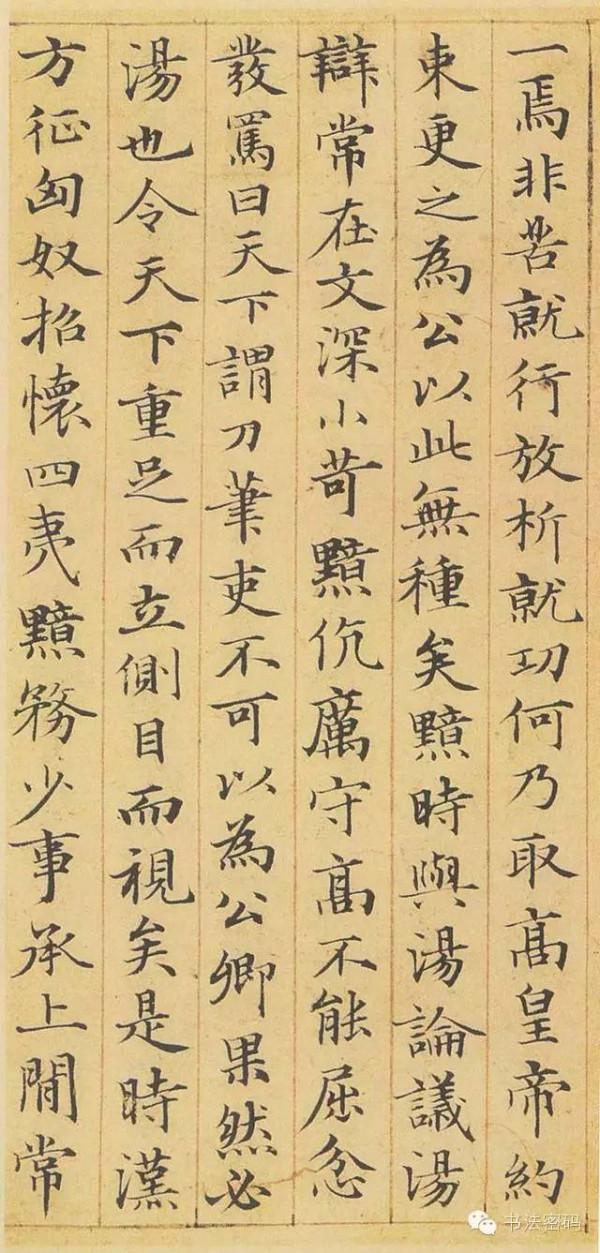 一焉非苦就行放析就功何乃取髙皇帝約
束更之為公以此無種矣黯時與湯論議湯
辯常在文深小苛黯伉厲守髙不能屈忿
發罵曰天下謂刀筆吏不可以為公卿果然必
湯也令天下重足而立側目而視矣是時漢
方征匈奴招懷四夷黯務少事承上間常
书法密码